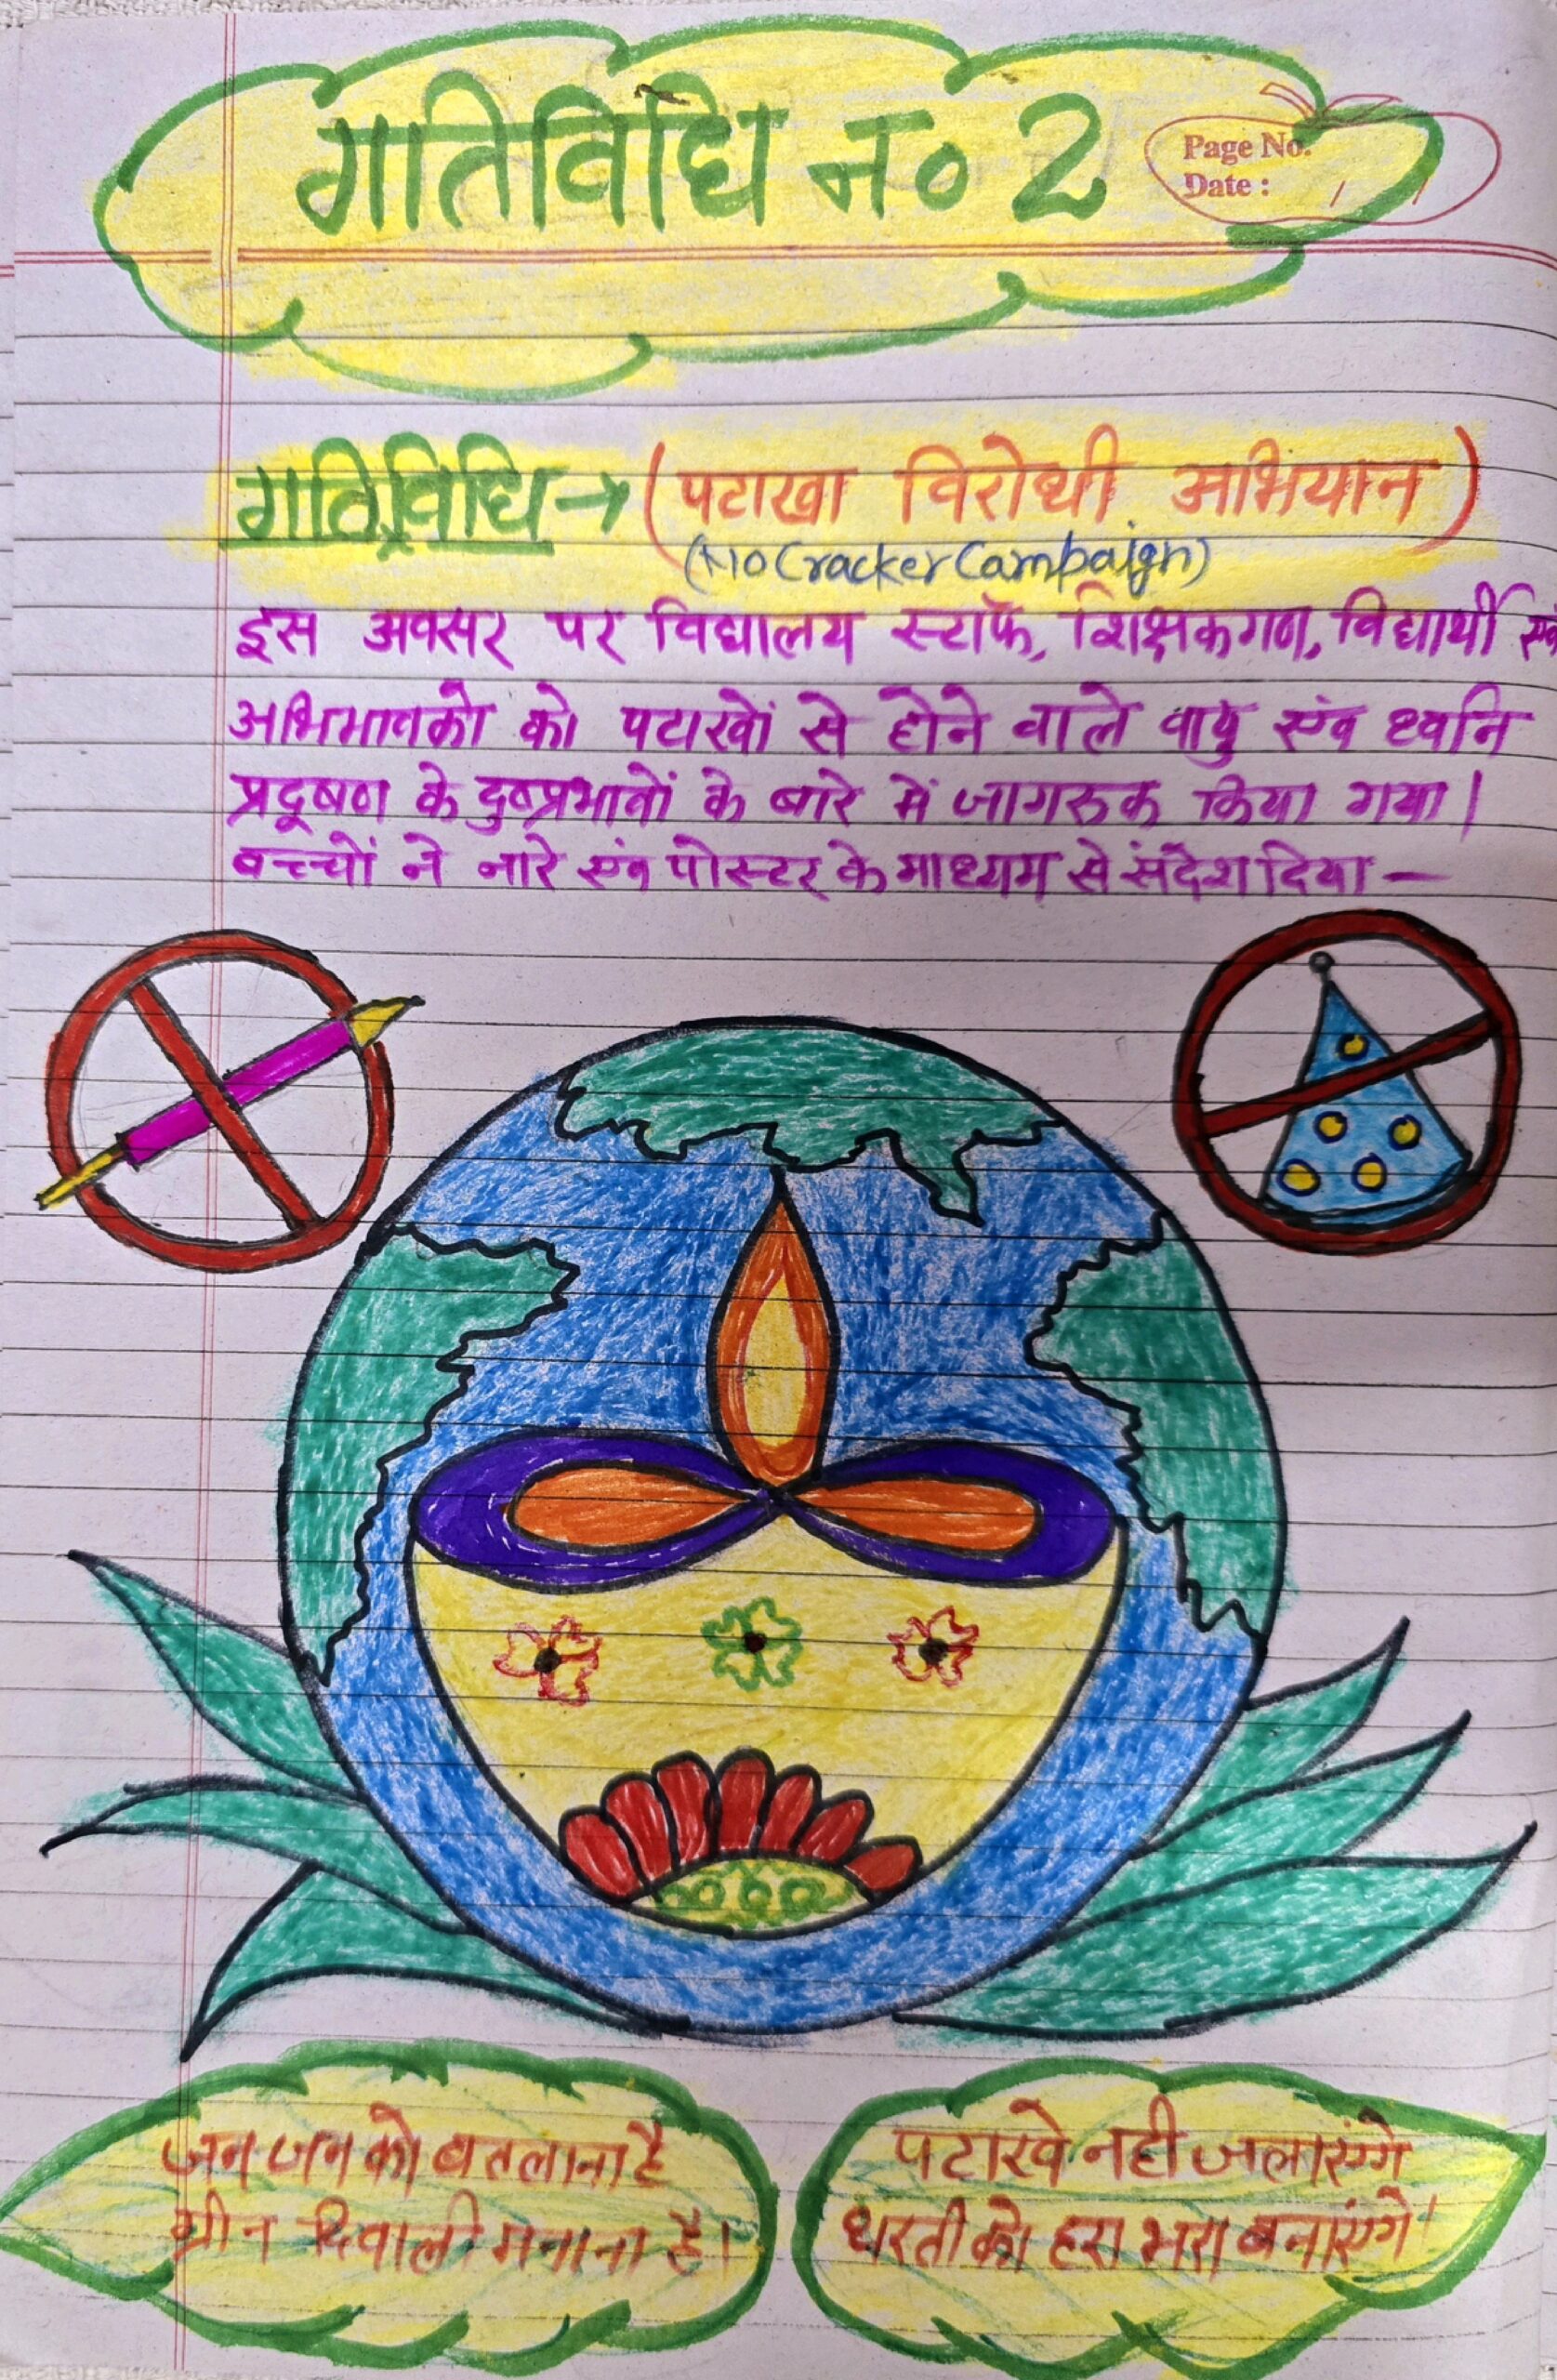 गतिविधि न० 2
Page No.
Date : / /
गतिविधि → (पटाखा विरोधी अभियान)
(No Cracker Campaign)
इस अवसर पर विद्यालय स्टॉफ, शिक्षकगण, विद्यार्थी एंव
अभिभावको को पटाखों से होने वाले वायु एंव ध्वनि
प्रदूषण के दुष्प्रभावों के बारे में जागरुक किया गया।
बच्चों ने नारे एंव पोस्टर के माध्यम से संदेश दिया —
जन जन को बतलाना है
ग्रीन दिवाली मनाना है।
पटाखे नही जलाएंगे
धरती को हरा भरा बनाएंगे।